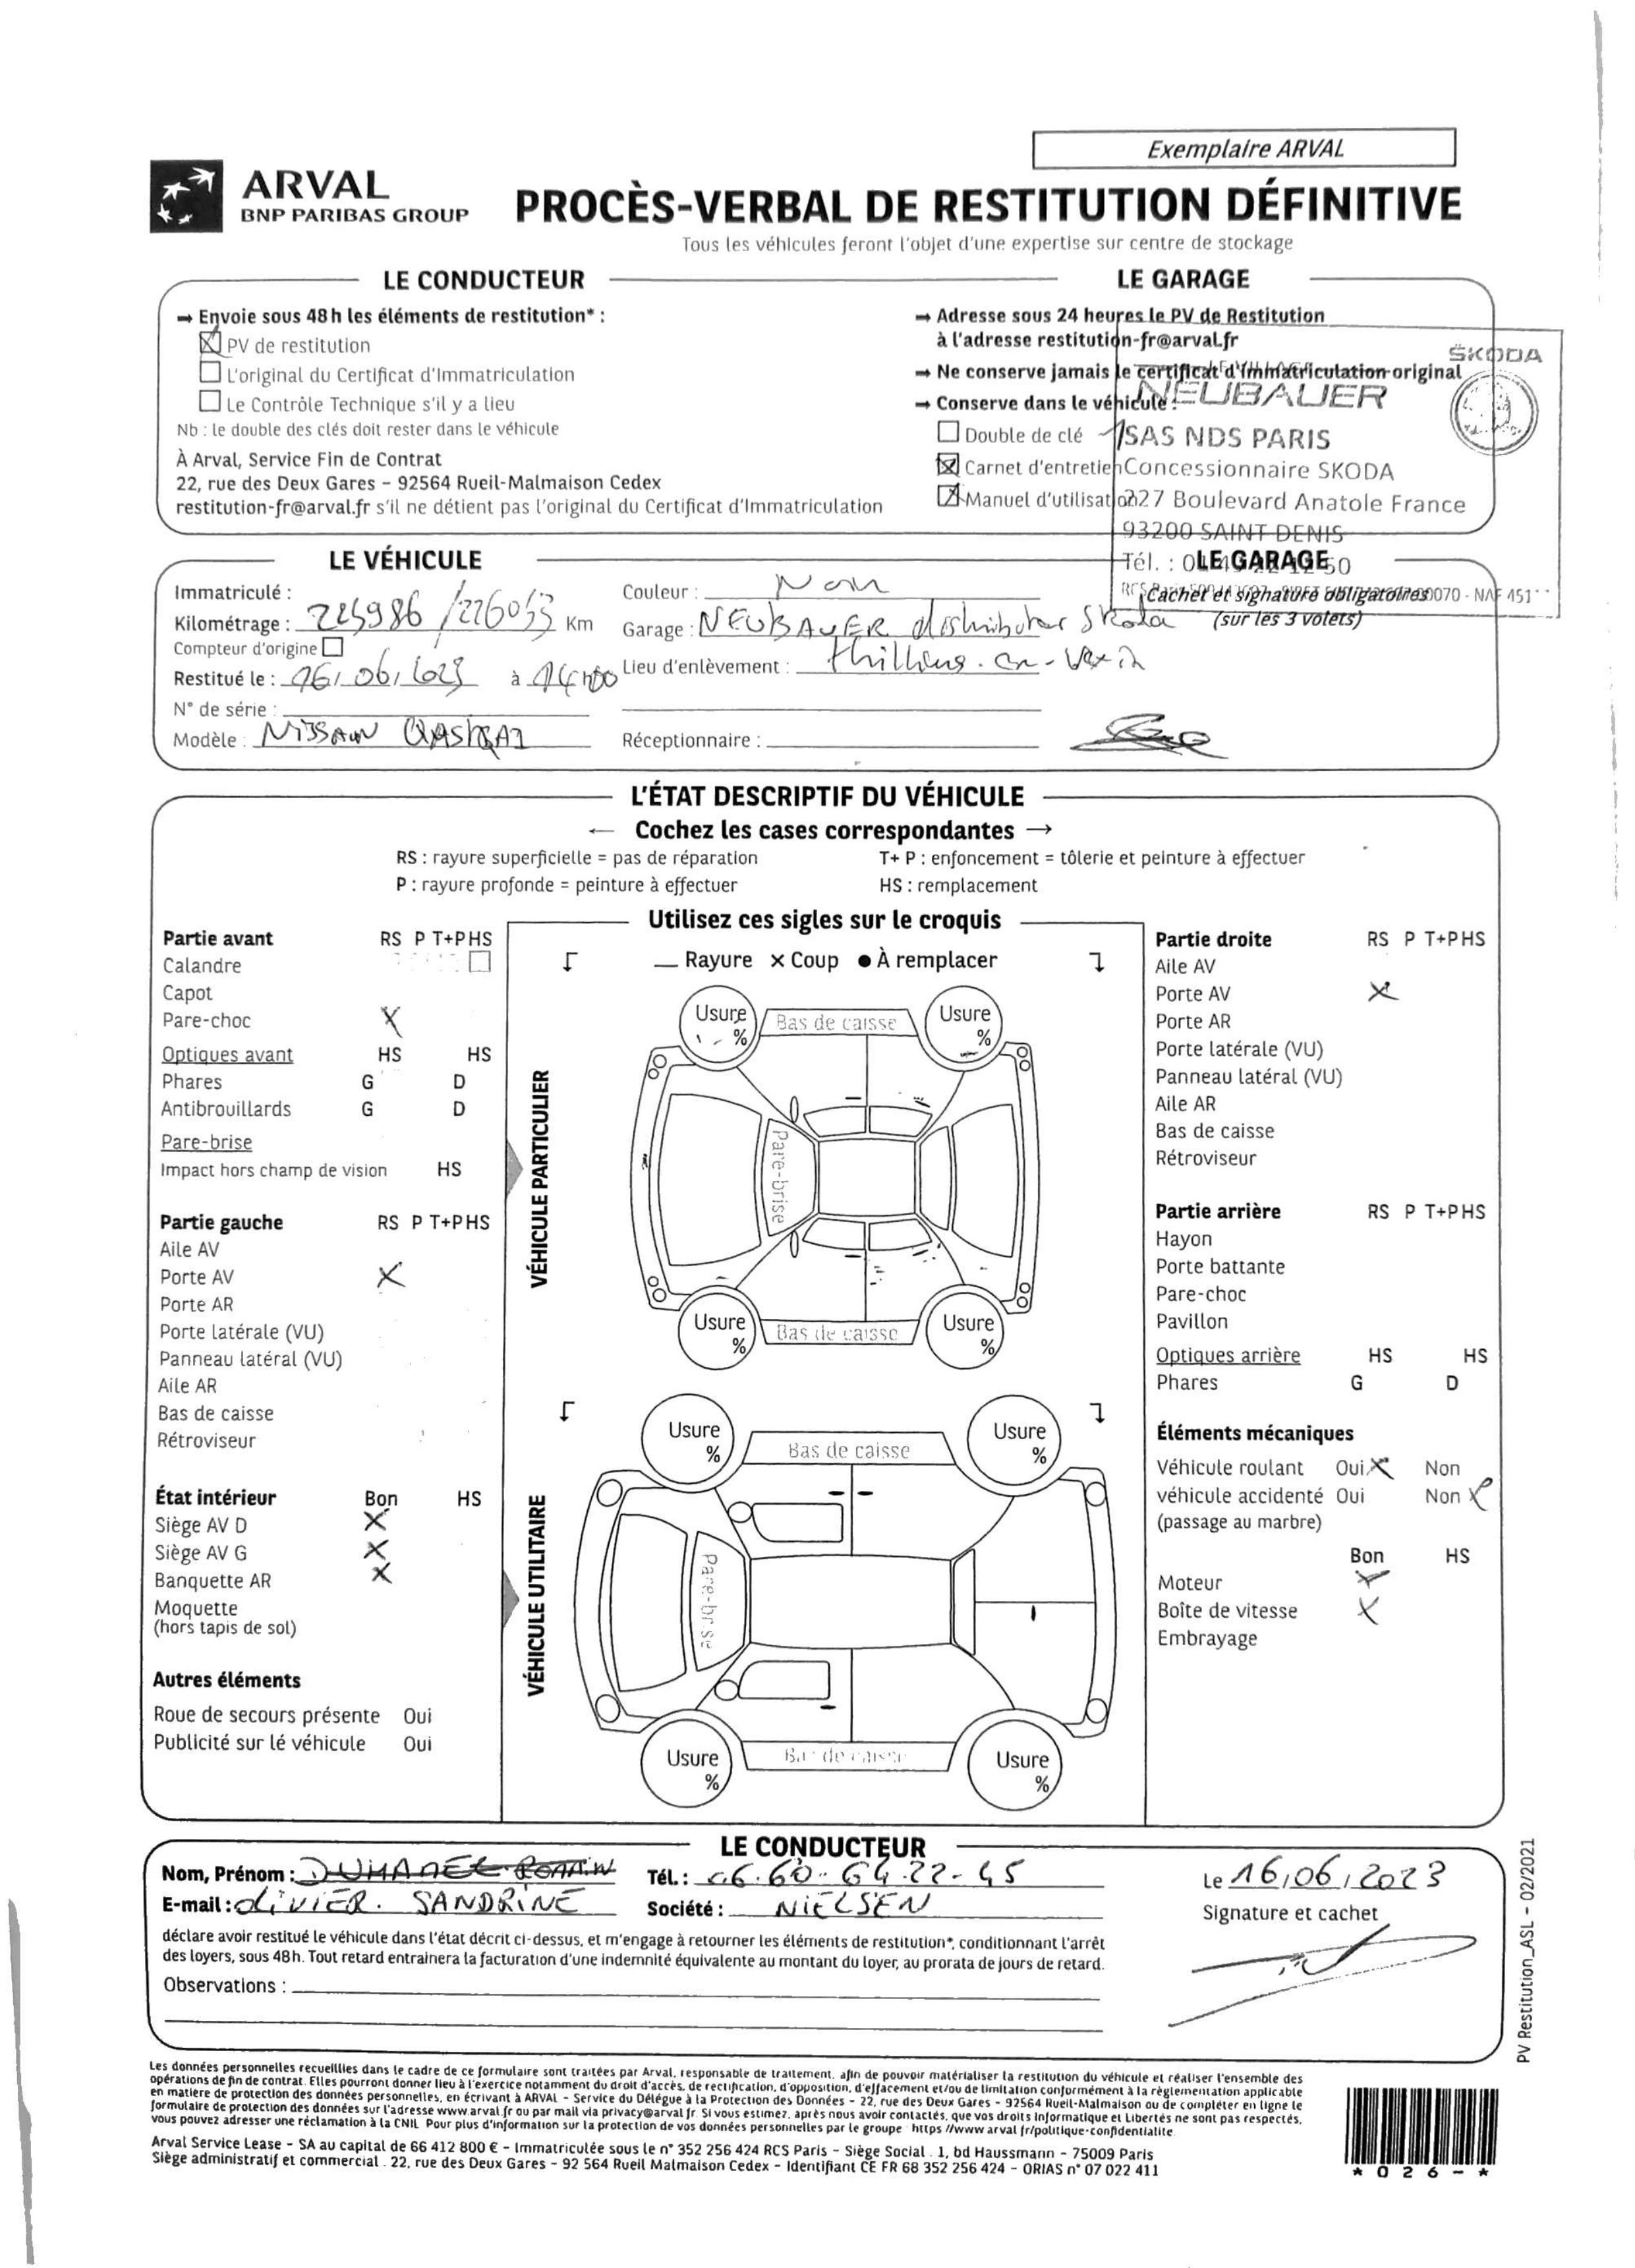 Exemplaire ARVAL
ARVAL
BNP PARIBAS GROUP
PROCÈS-VERBAL DE RESTITUTION DÉFINITIVE
Tous les véhicules feront l'objet d'une expertise sur centre de stockage
LE CONDUCTEUR
→ Envoie sous 48 h les éléments de restitution* :
PV de restitution
L'original du Certificat d'Immatriculation
Le Contrôle Technique s'il y a lieu
Nb : le double des clés doit rester dans le véhicule
À Arval, Service Fin de Contrat
22, rue des Deux Gares – 92564 Rueil-Malmaison Cedex
restitution-fr@arval.fr s'il ne détient pas l'original du Certificat d'Immatriculation
LE GARAGE
→ Adresse sous 24 heures le PV de Restitution
à l'adresse restitution-fr@arval.fr
→ Ne conserve jamais le certificat d'Immatriculation original
→ Conserve dans le véhicule :
Double de clé
Carnet d'entretien
Manuel d'utilisation
ŠKODA
NEUBAUER
SAS NDS PARIS
Concessionnaire SKODA
227 Boulevard Anatole France
93200 SAINT DENIS
Tél. :
LE GARAGE
Cachet et signature obligatoires
(sur les 3 volets)
LE VÉHICULE
Immatriculé :
Kilométrage : 225986 / 226053 Km
Compteur d'origine
Restitué le : 16/06/2023 à 14h00
N° de série :
Modèle : NISSAN QASHQAI
Couleur : Noir
Garage : NEUBAUER distributor Skoda
Lieu d'enlèvement : thilliers-en-Vexin
Réceptionnaire :
L'ÉTAT DESCRIPTIF DU VÉHICULE
← Cochez les cases correspondantes →
RS : rayure superficielle = pas de réparation
T+ P : enfoncement = tôlerie et peinture à effectuer
P : rayure profonde = peinture à effectuer
HS : remplacement
Utilisez ces sigles sur le croquis
— Rayure × Coup ● À remplacer
Partie avant RS P T+P HS
Calandre
Capot
Pare-choc X
Optiques avant HS HS
Phares G D
Antibrouillards G D
Pare-brise
Impact hors champ de vision HS
Partie gauche RS P T+P HS
Aile AV
Porte AV X
Porte AR
Porte latérale (VU)
Panneau latéral (VU)
Aile AR
Bas de caisse
Rétroviseur
État intérieur Bon HS
Siège AV D X
Siège AV G X
Banquette AR X
Moquette
(hors tapis de sol)
Autres éléments
Roue de secours présente Oui
Publicité sur lé véhicule Oui
VÉHICULE PARTICULIER
Usure %
Bas de caisse
Usure %
Pare-brise
Usure %
Bas de caisse
Usure %
VÉHICULE UTILITAIRE
Usure %
Bas de caisse
Usure %
Pare-brise
Usure %
Bas de caisse
Usure %
Partie droite RS P T+P HS
Aile AV
Porte AV X
Porte AR
Porte latérale (VU)
Panneau latéral (VU)
Aile AR
Bas de caisse
Rétroviseur
Partie arrière RS P T+P HS
Hayon
Porte battante
Pare-choc
Pavillon
Optiques arrière HS HS
Phares G D
Éléments mécaniques
Véhicule roulant Oui X Non
véhicule accidenté Oui Non X
(passage au marbre)
Bon HS
Moteur X
Boîte de vitesse X
Embrayage
LE CONDUCTEUR
Nom, Prénom : DUHAMEL ROMAIN
E-mail : OLIVIER. SANDRINE
Tél. : 06.60.64.22-45
Société : NIELSEN
Le 16/06/2023
Signature et cachet
déclare avoir restitué le véhicule dans l'état décrit ci-dessus, et m'engage à retourner les éléments de restitution*, conditionnant l'arrêt
des loyers, sous 48h. Tout retard entrainera la facturation d'une indemnité équivalente au montant du loyer, au prorata de jours de retard.
Observations :
PV Restitution_ASL – 02/2021
Les données personnelles recueillies dans le cadre de ce formulaire sont traitées par Arval, responsable de traitement, afin de pouvoir matérialiser la restitution du véhicule et réaliser l'ensemble des
opérations de fin de contrat. Elles pourront donner lieu à l'exercice notamment du droit d'accès, de rectification, d'opposition, d'effacement et/ou de limitation conformément à la règlementation applicable
en matière de protection des données personnelles, en écrivant à ARVAL – Service du Délégue à la Protection des Données – 22, rue des Deux Gares – 92564 Rueil-Malmaison ou de compléter en ligne le
formulaire de protection des données sur l'adresse www.arval.fr ou par mail via privacy@arval.fr. Si vous estimez, après nous avoir contactés, que vos droits Informatique et Libertés ne sont pas respectés,
vous pouvez adresser une réclamation à la CNIL. Pour plus d'information sur la protection de vos données personnelles par le groupe : https://www.arval.fr/politique-confidentialite
Arval Service Lease – SA au capital de 66 412 800 € – Immatriculée sous le n° 352 256 424 RCS Paris – Siège Social : 1, bd Haussmann – 75009 Paris
Siège administratif et commercial : 22, rue des Deux Gares – 92 564 Rueil Malmaison Cedex – Identifiant CE FR 68 352 256 424 – ORIAS n° 07 022 411
* 0 2 6 - *